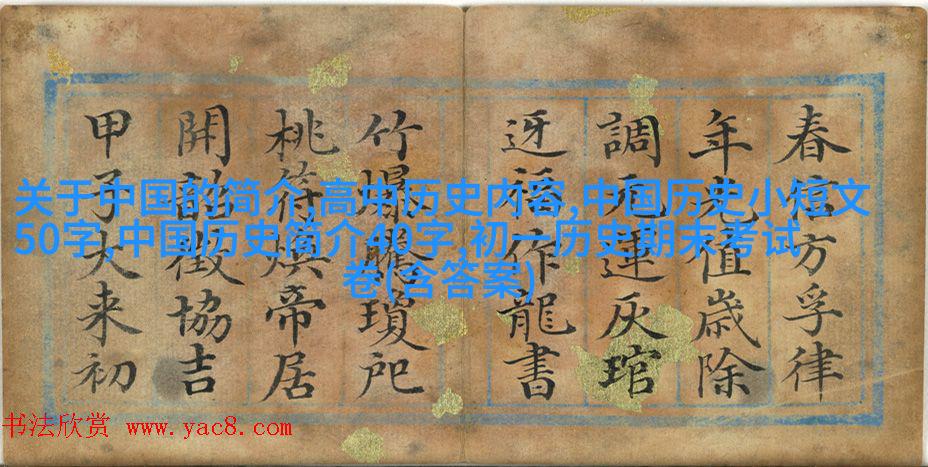 春信方孚律
年光值歲除
調元運灰琯
迓福作龍書
竹爆騰瓊戺
桃符煥帝居
開韶徵協吉
甲子大来初
关于中国的简介,高中历史内容,中国历史小短文
50字,中国历史简介40字,初一历史期末考试
卷(含答案)
书法欣赏 www.yac8.com